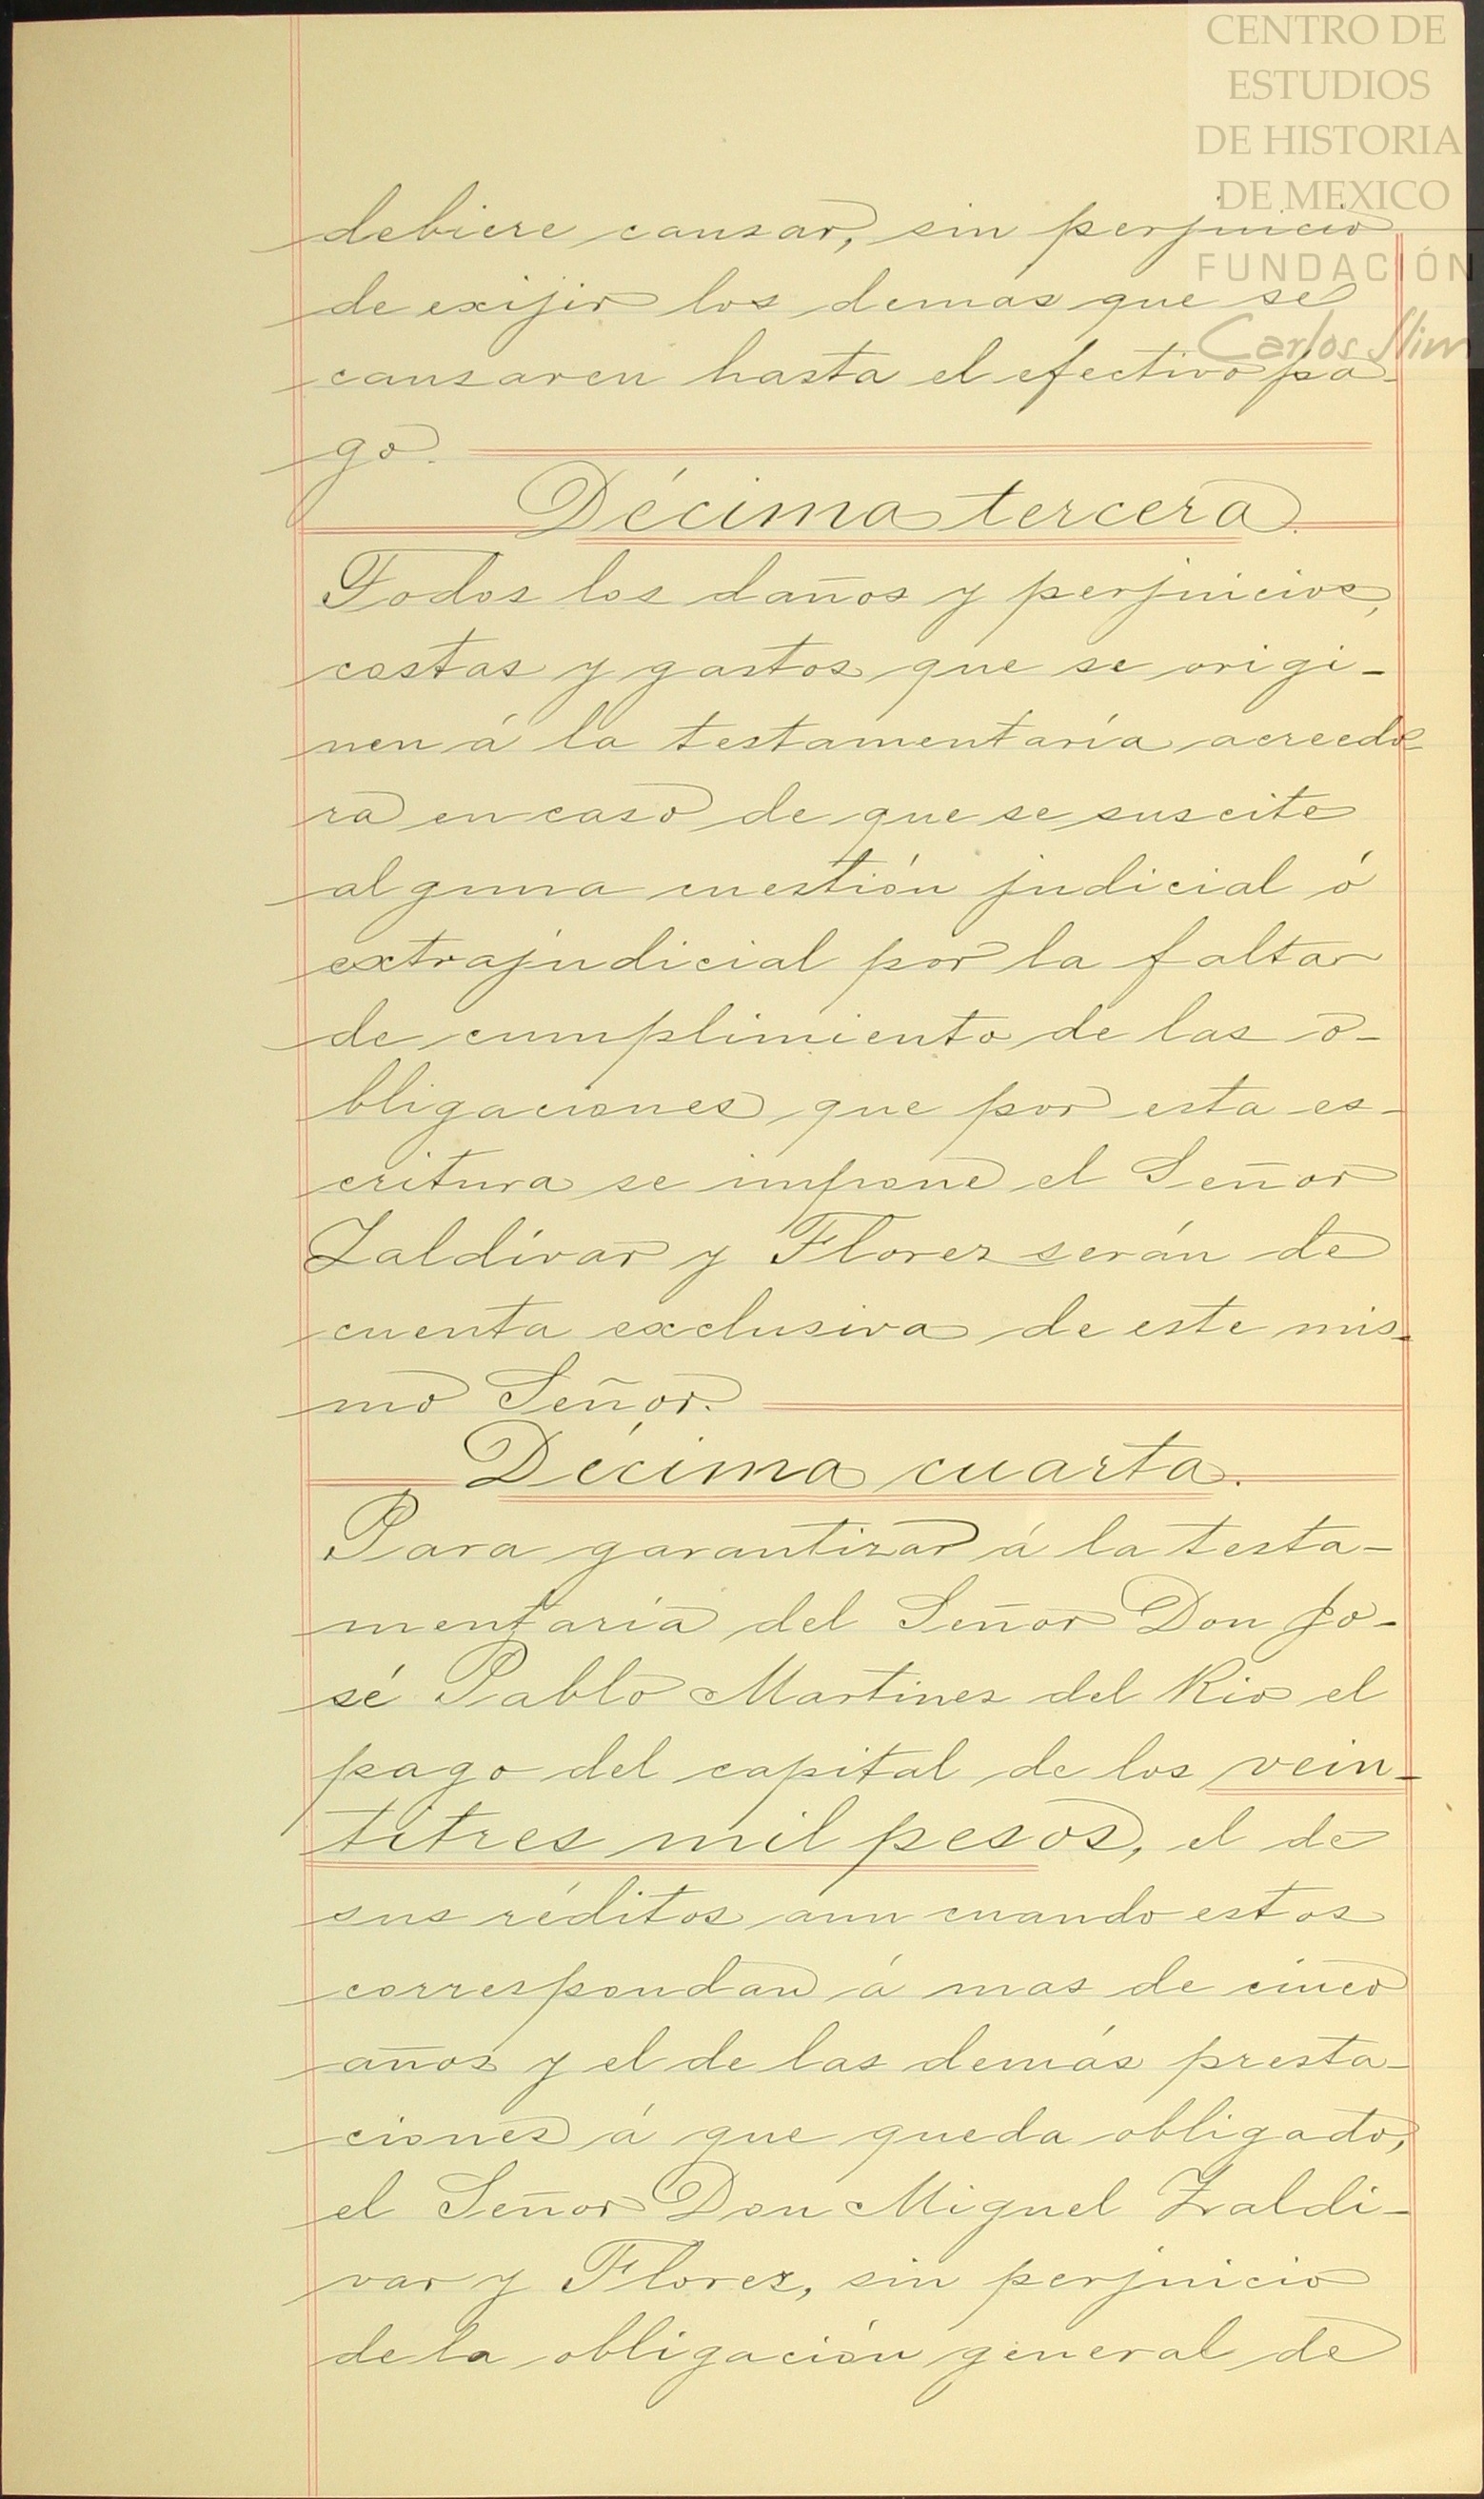 CENTRO DE
ESTUDIOS
DE HISTORIA
DE MEXICO
FUNDACIÓN
Carlos Slim
debiere causar, sin perjuicio
de exijir los demas que se
causaren hasta el efectivo pa-
go.
Décima tercera.
Todos los daños y perjuicios,
costas y gastos que se origi-
nen á la testamentaría acreedo-
ra en caso de que se suscite
alguna cuestión judicial ó
extrajudicial por la falta
de cumplimiento de las o-
bligaciones que por esta es-
critura se impone el Señor
Zaldívar y Flores serán de
cuenta exclusiva de este mis-
mo Señor.
Décima cuarta.
Para garantizar á la testa-
mentaría del Señor Don Jo-
sé Pablo Martinez del Rio el
pago del capital de los vein-
titres mil pesos, el de
sus réditos aun cuando estos
correspondan á mas de cinco
años y el de las demás presta-
ciones á que queda obligado,
el Señor Don Miguel Zaldi-
var y Flores, sin perjuicio
de la obligación general de